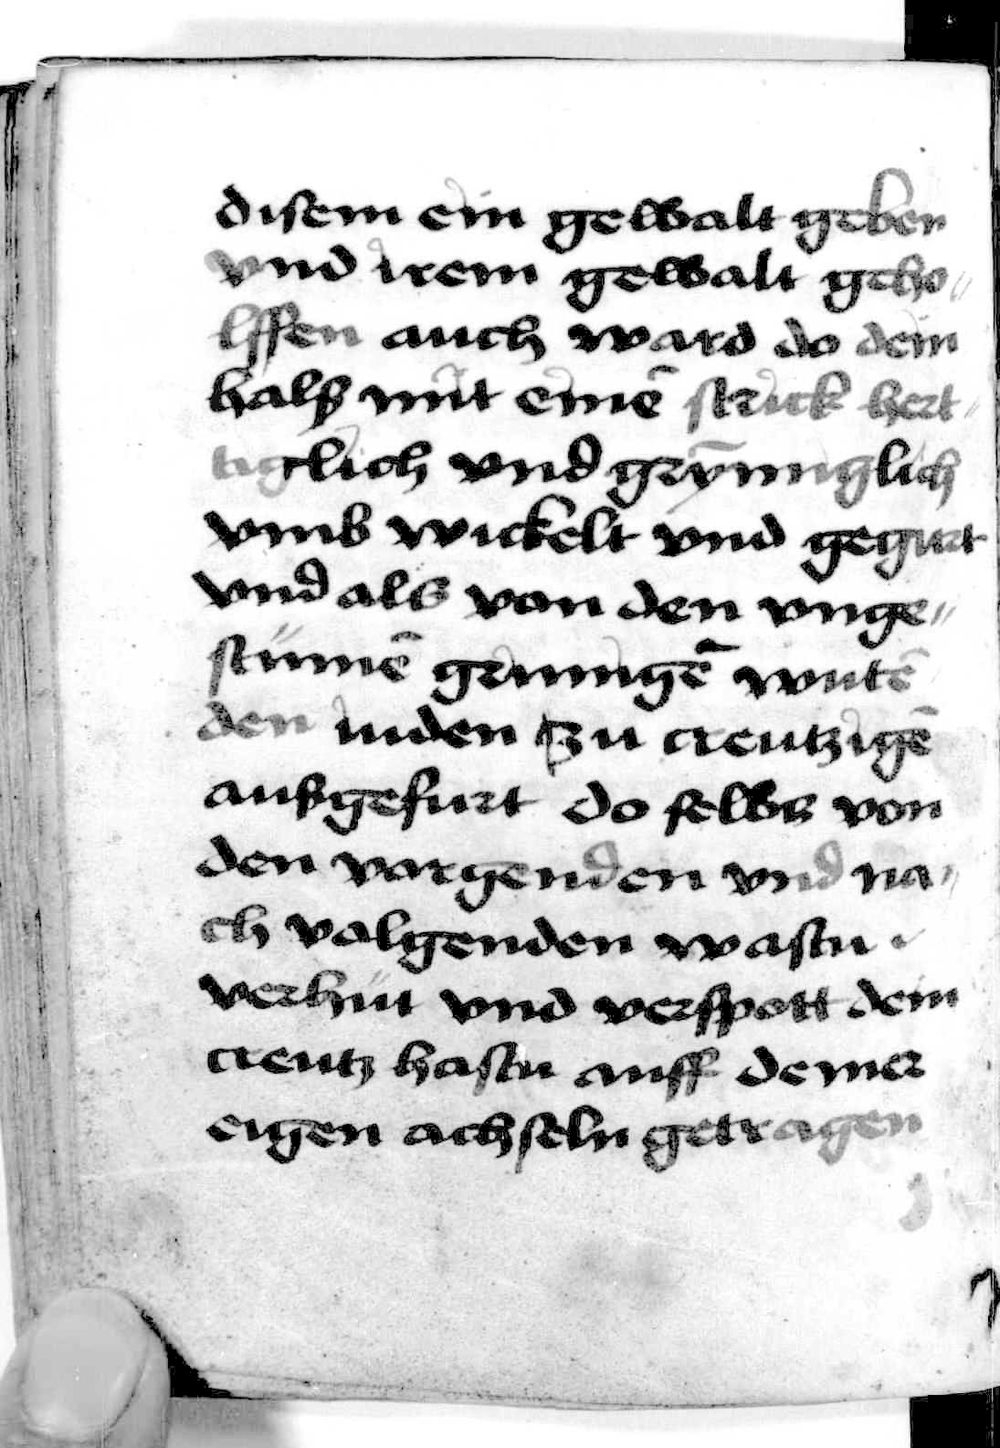 disem ein gewalt geben
vnd irem gewalt geho„
lffen auch ward do dein
halß mit einē strick hert„
tiglich vnd grȳmiglich
vmb wickelt vnd gegurt
vnd als von den vnge„
stümē grimigē wütē
den iuden zu creutzigē
außgefurt do selbs von
den vorgenden vnd na„
ch volgenden wastu
verhüt vnd verspott dein
creutz hastu auff deiner
eigen achseln getragen